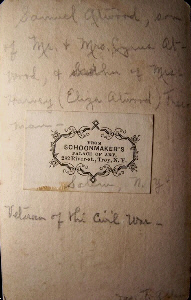 Samuel Atwood, son
of Mr. & Mrs. Cyrus At-
wood, & brother of Mrs.
Harvey (Eliza Atwood)
man -
FROM
SCHOONMAKER'S
PALACE OF ART,
282 River-st., Troy, N. Y.
N. Y.
Veteran of the Civil War -